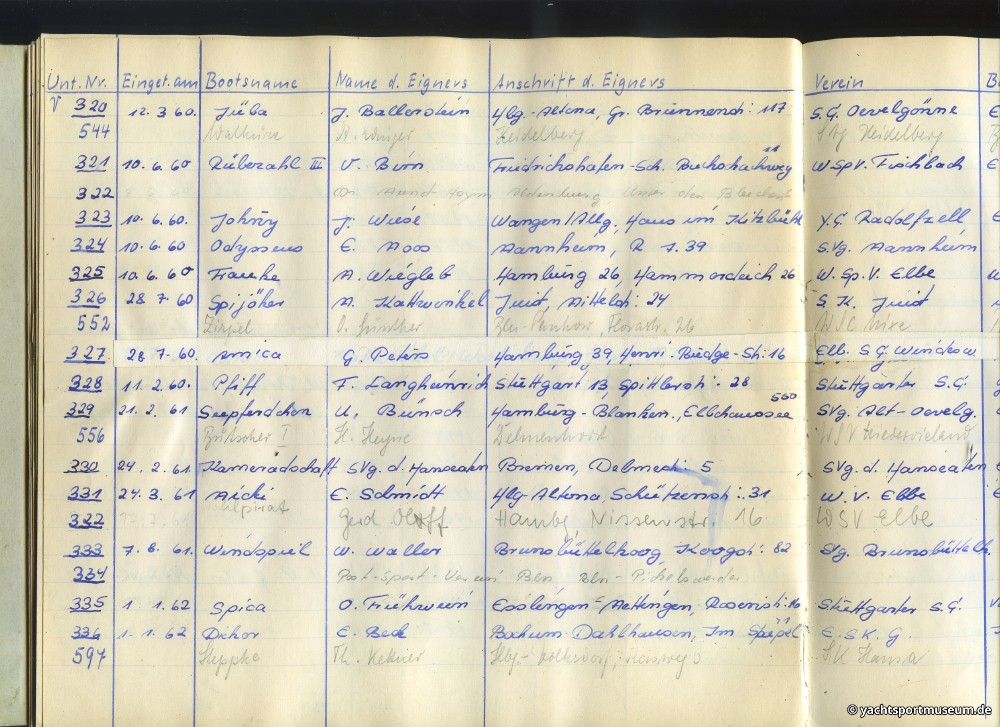 Unt. Nr. Einget. am Bootsname Name d. Eigners Anschrift d. Eigners Verein
V 320 12. 3. 60. Jüba J. Ballerstein Hbg.-Altona, Gr. Brunnenstr. 117 S.G. Oevelgönne
544 Walküre Heidelberg SVg Heidelberg
321 10. 6. 60 Rübezahl III V. Born Friedrichshafen-Sch. 11 W.Sp.V. Fischbach
322
323 10. 6. 60. Johnny J. Wiese Wangen/Allg, Haus im Y.C. Radolfzell
324 10. 6. 60 Odysseus E. Moos Mannheim, R 7.39 S.Vg. Mannheim
325 10. 6. 60 Frauke A. Wiegleb Hamburg 26, Hammerdeich 26 W.Sp.V. Elbe
326 28. 7. 60 Spijöker A. Kattwinkel Juist, Mittelstr. 24 S.K. Juist
552 Zirpel O. Günther Bln-Pankow, Florastr. 26 WSC
327 28. 7. 60. Amica G. Peters Hamburg 39, Henri-Budge-Str. 16 Elb. S.G. Windesw.
328 11. 2. 60. Pfiff F. Langheinrich Stuttgart 13, Spittlerstr. 28 Stuttgarter S.G.
329 21. 2. 61 Seepferdchen U. Bünsch Hamburg-Blanken., Elbchaussee 560 SVg. Alt-Oevelg.
556 I H. Heyne Delmenhorst WSV Niedervieland
330 24. 2. 61. Kameradschaft SVg. d. Hanseaten Bremen, Delmestr. 5 SVg. d. Hanseaten
331 24. 3. 61 Micki E. Schmidt Hbg Altona, Schützenstr. 31 W.V. Elbe
332 Gerd Hambg, Nissenstr. 16 WSV Elbe
333 7. 8. 61. Windspiel W. Waller Brunsbüttelkoog Koogstr. 82 SVg. Brunsbüttelk.
334 Post-Sport-Verein Bln Bln-Pichelswerder
335 1. 1. 62 Spica O. Frühwein Esslingen-Mettingen, Rosenstr. 16 Stuttgarter S.G.
336 1. 1. 62 E. Beck Bochum Dahlhausen, Im E.S.K.G.
597 Steppke Th. Hbg.-Volksdorf, SK Hansa
© yachtsportmuseum.de